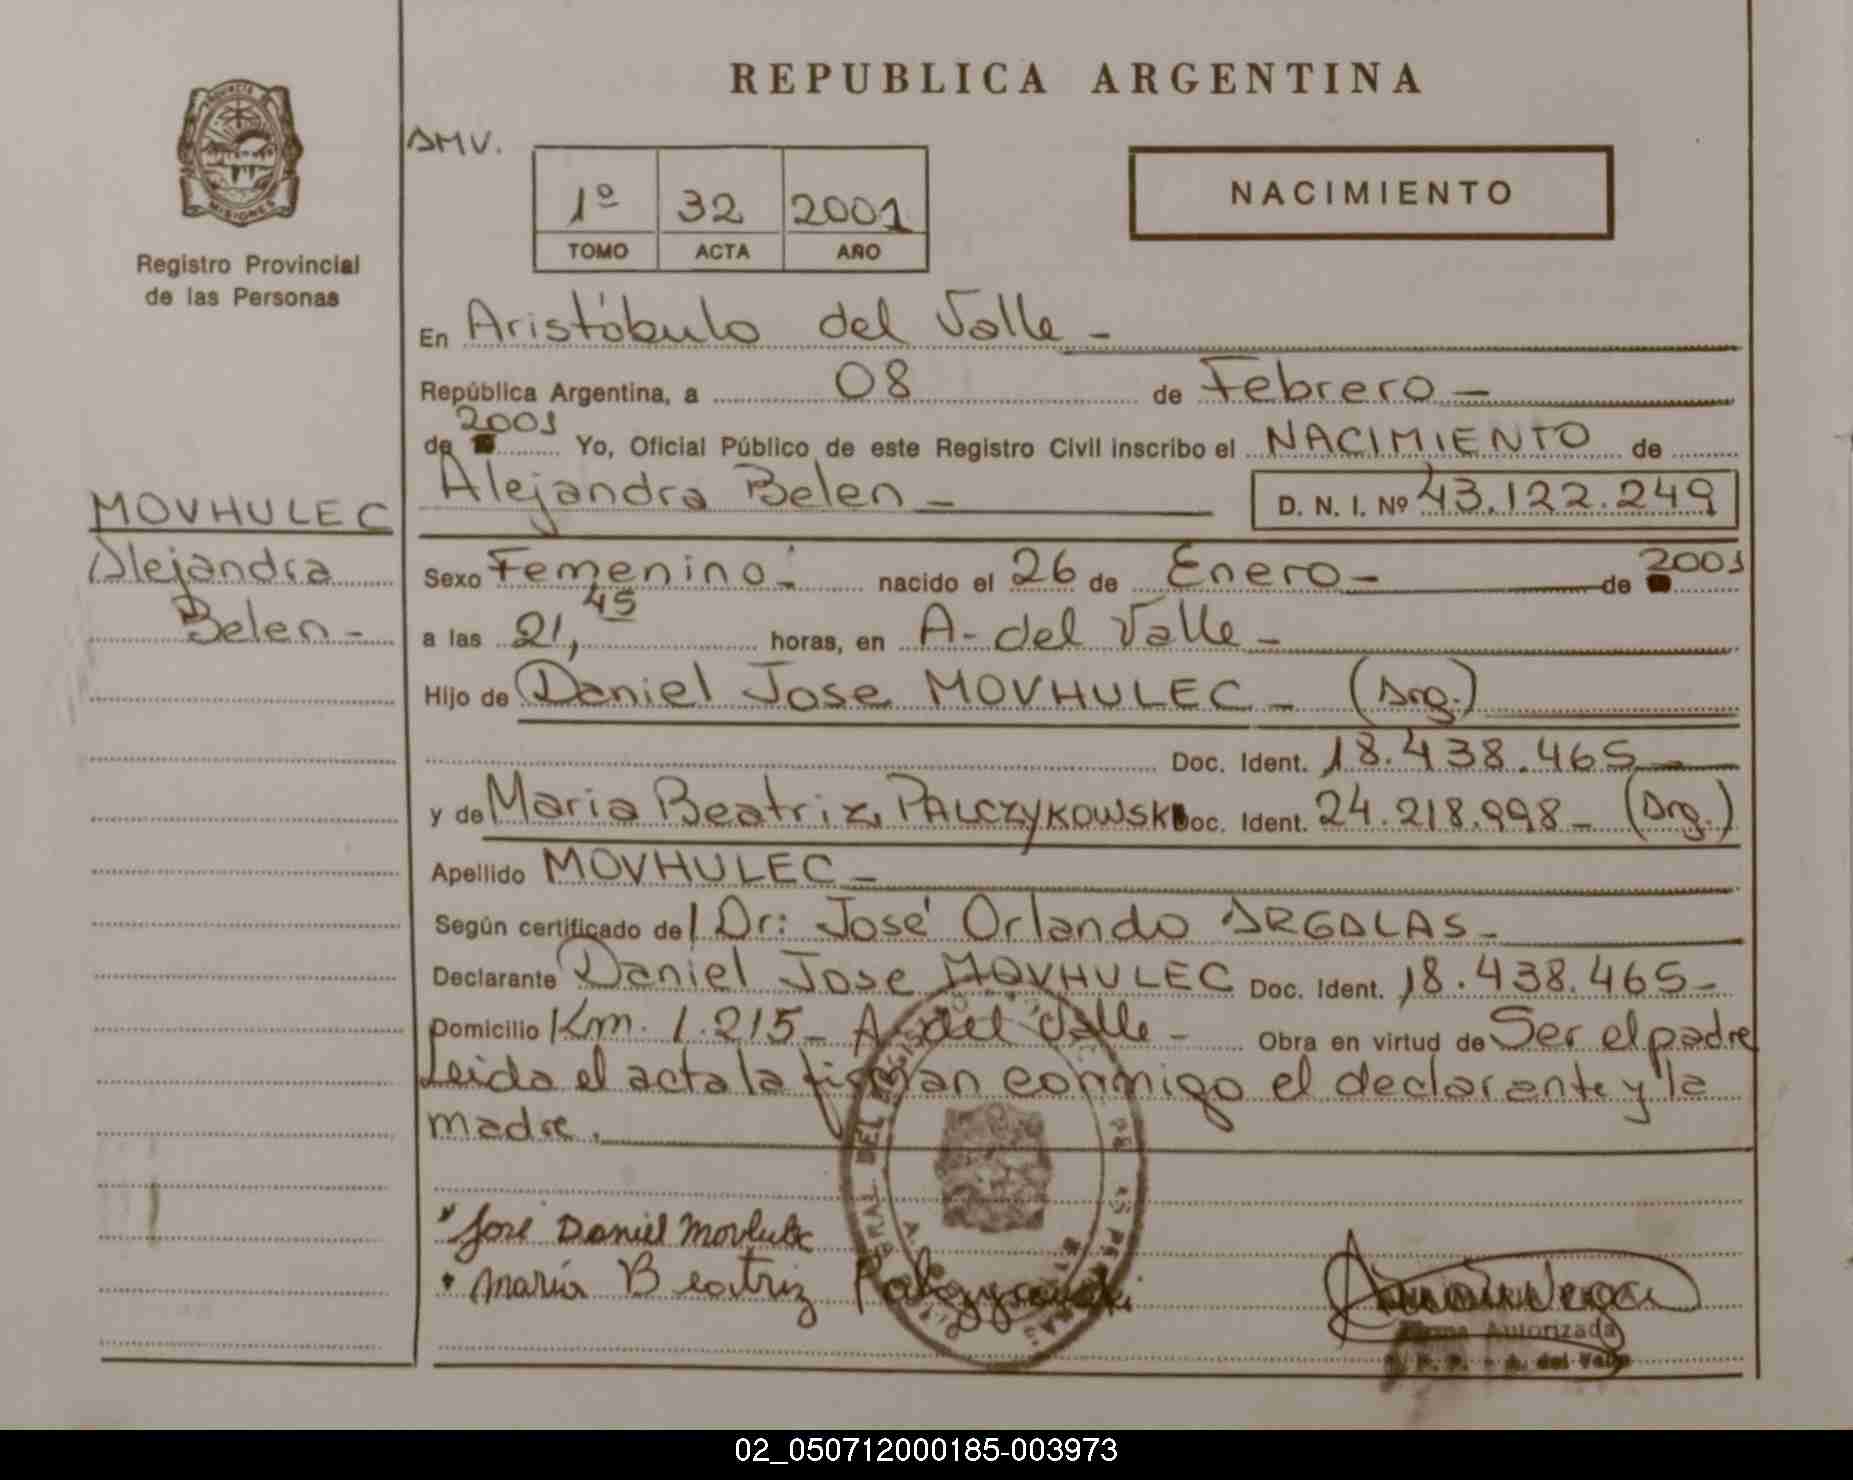 REPUBLICA ARGENTINA
PROVINCIA
MISIONES
Registro Provincial
de las Personas
DMV.
1º 32 2001
TOMO ACTA AÑO
NACIMIENTO
En Aristóbulo del Valle -
República Argentina, a 08 de Febrero -
de 2001 Yo, Oficial Público de este Registro Civil inscribo el NACIMIENTO de
Alejandra Belen - D. N. I. Nº 43.122.249
MOVHULEC
Alejandra
Belen -
Sexo Femenino - nacido el 26 de Enero - de 2001
a las 21,45 horas, en A. del Valle -
Hijo de Daniel Jose MOVHULEC - (Arg.)
Doc. Ident. 18.438.465 -
y de Maria Beatriz PALCZYKOWSKI Doc. Ident. 24.218.998 - (Arg.)
Apellido MOVHULEC -
Según certificado del Dr: José Orlando ARGALAS -
Declarante Daniel Jose MOVHULEC Doc. Ident. 18.438.465 -
Domicilio Km. 1.215 - A. del Valle - Obra en virtud de Ser el padre
Leida el acta la firman conmigo el declarante y la
madre.
José Daniel Movhulec
María Beatriz
Firma Autorizada
A. del Valle
02_050712000185-003973